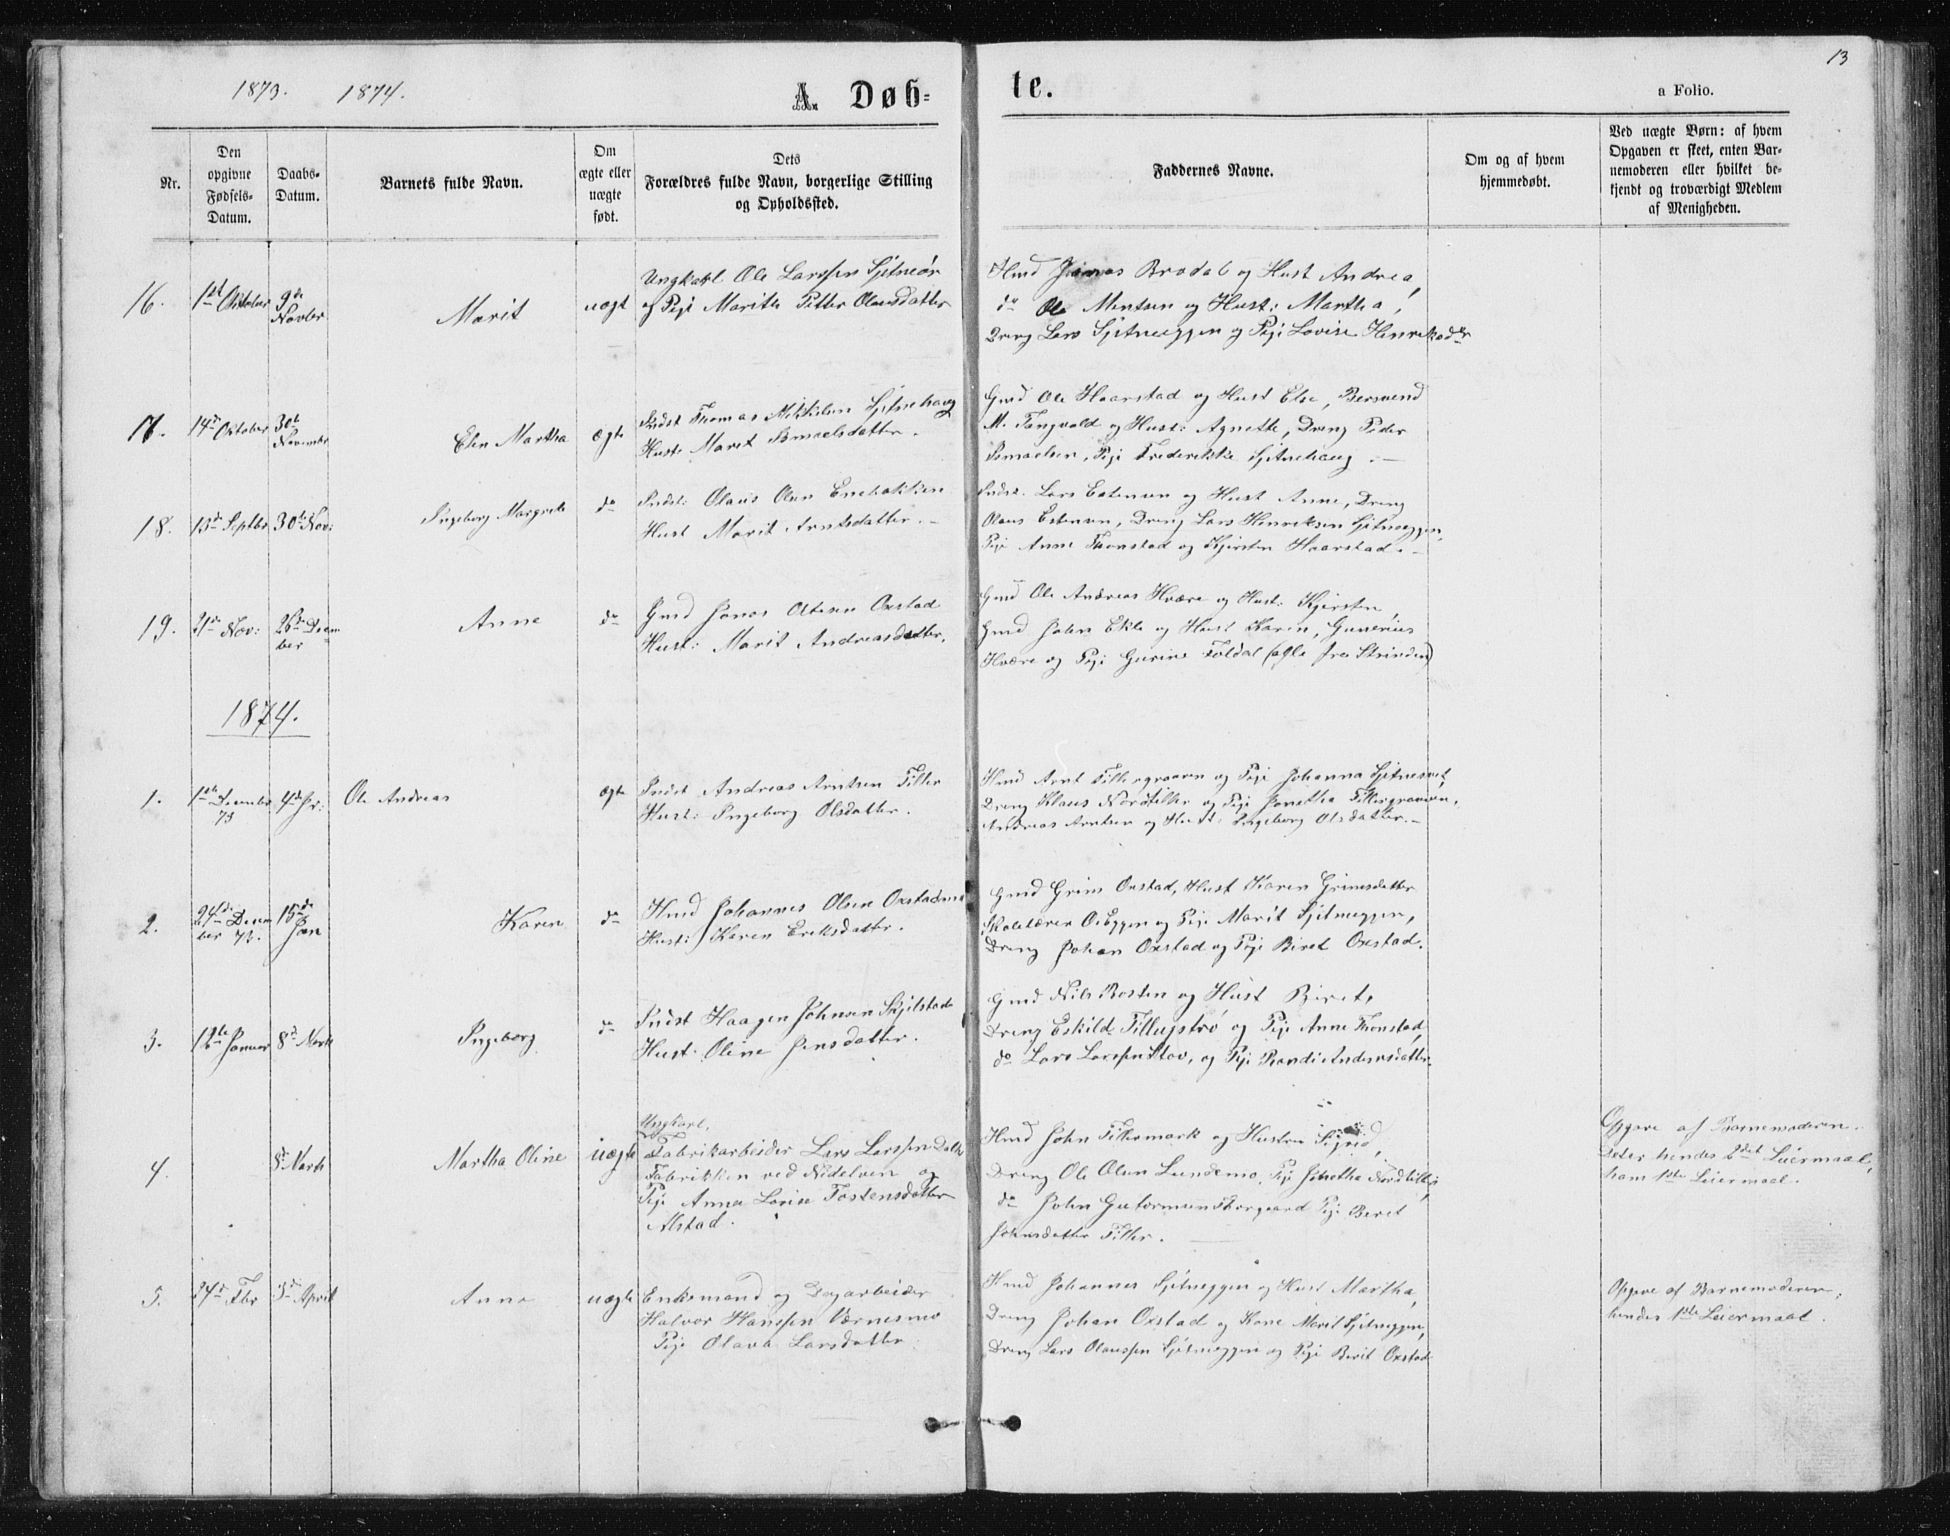 1873. 1874.
A. Døb=
te.
13
a Folio.
Nr.
Den opgivne Fødsels-Datum.
Daabs-Datum.
Barnets fulde Navn.
Om ægte eller uægte født.
Dets Forældres fulde Navn, borgerlige Stilling og Opholdssted.
Faddernes Navne.
Om og af hvem hjemmedøbt.
Ved uægte Børn: af hvem Opgaven er skeet, enten Barnemoderen eller hvilket bekjendt og troværdigt Medlem af Menigheden.
16. 1st Oktober 9de Novbr Marit uægt
Ungkarl Ole Larssen Sjetneør
og Pige Marith Peter Olausdatter
Hmd Jonas Brødal og Hust Andrea,
do Ole Mentsen og Hust: Martha,
Dreng Lars Sjetneeggen og Pige Lovise Henriksdtr
17. 14de Oktober 30te November Elen Martha ægte
Indst Thomas Mikkelsen Sjetnehaug
Hust: Marit Ismaelsdatter.
Gmd Ole Haarstad og Hust Else, Bersvend
M. Tungvold og Hust: Agnette, Dreng Peder
Ismaelsen, Pige Frederikke Sjetnehaug.
18. 13de Septbr 30te Nov: Ingeborg Margrete do
Indst: Olaus Olsen Enebakken
Hust Marit Arntsdatter.
Indst. Lars Estensen og Hust Anne, Dreng
Olaus Estensen, Dreng Lars Henriksen Sjetneeggen,
Pige Anne Thonstad og Kjersten Haarstad.
19. 21de Nov: 26de December Anne do
Gmd Jonas Olesen Oxstad
Hust: Marit Andreasdatter.
Gmd Ole Andreas Hvære og Hust: Kjersten,
Gmd John Ekle og Hust Karen, Gunerius
Hvære og Pige Gurine Foldal (alle fra Strinden)
1874.
1. 1ste December 73 4de Jr: Ole Andreas ægte
Indst Andreas Arntsen Tiller
Hust: Ingeborg Olsdatter.
Hmd Arnt Tillergraaven og Pige Johanna
Dreng Klaus Nordtiller og Pige Jonetha Tillergraaven,
Andreas Arntsen og Hust: Ingeborg Olsdatter.
2. 24de December 73. 15de Jan Karen do
Hmd Johannes Olsen
Hust: Karen Eriksdatter.
Gmd Grim Oxstad, Hust Karen Grimsdatter
Skolelærer O. Eggen og Pige Marit Sjetneeggen,
Dreng Johan Oxstad og Pige Beret Oxstad.
3. Januar 8de Marts Ingeborg do
Indst Haagen Johnsen Skjelstad
Hust: Oline Jensdatter.
Gmd Nils Rosten og Hust Beret,
Dreng Eskild og Pige Anne Thonstad,
do Lars Larssen og Pige Randi Andersdatter.
4. 8de Marts Martha Oline uægte
Ungkarl,
Fabrikarbeider Lars Larssen
Fabrikken ved Nidelven og
Pige Anna Lovise Tostensdatter
Alstad.
Hmd John Tillermark og Hustru Sigrid,
Dreng Ole Olsen Lundemo, Pige Jonetha Nordtiller,
do John Guttormsen Thorgaard Pige Beret
Johnsdatter Tiller.
Opgave af Barnemoderen.
Dette hendes 2det Leiermaal,
hans 1ste Leiermaal.
5. 24de Fbr 3de April Anna uægte
Enkemand og Dagarbeider
Halvor Hanssen Værnesmo
Pige Olava Larsdatter.
Hmd Johannes Sjetneeggen og Hust Martha,
Dreng Johan Oxstad og Kone Marit Sjetneggen,
Dreng Lars Olaussen Sjetneeggen og Pige Berit Oxstad
Opgave af Barnemoderen,
hendes 1ste Leiermaal.